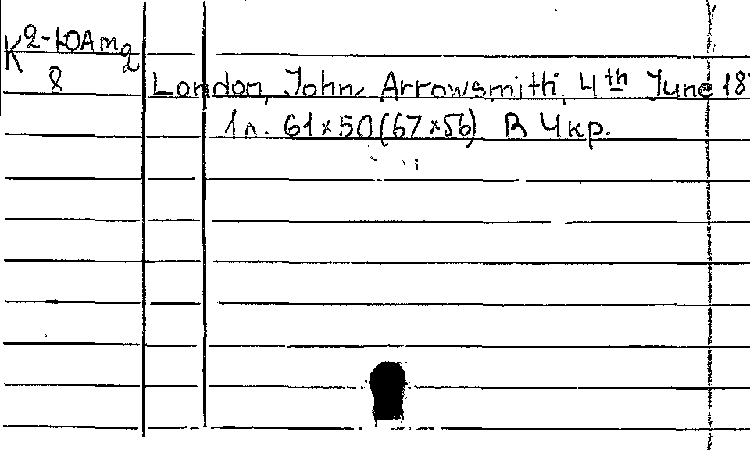 K 2-ЮАм 2
8
London, John Arrowsmith, 4th June 18
1 л. 61 x 50 (67 x 56) В 4 кр.